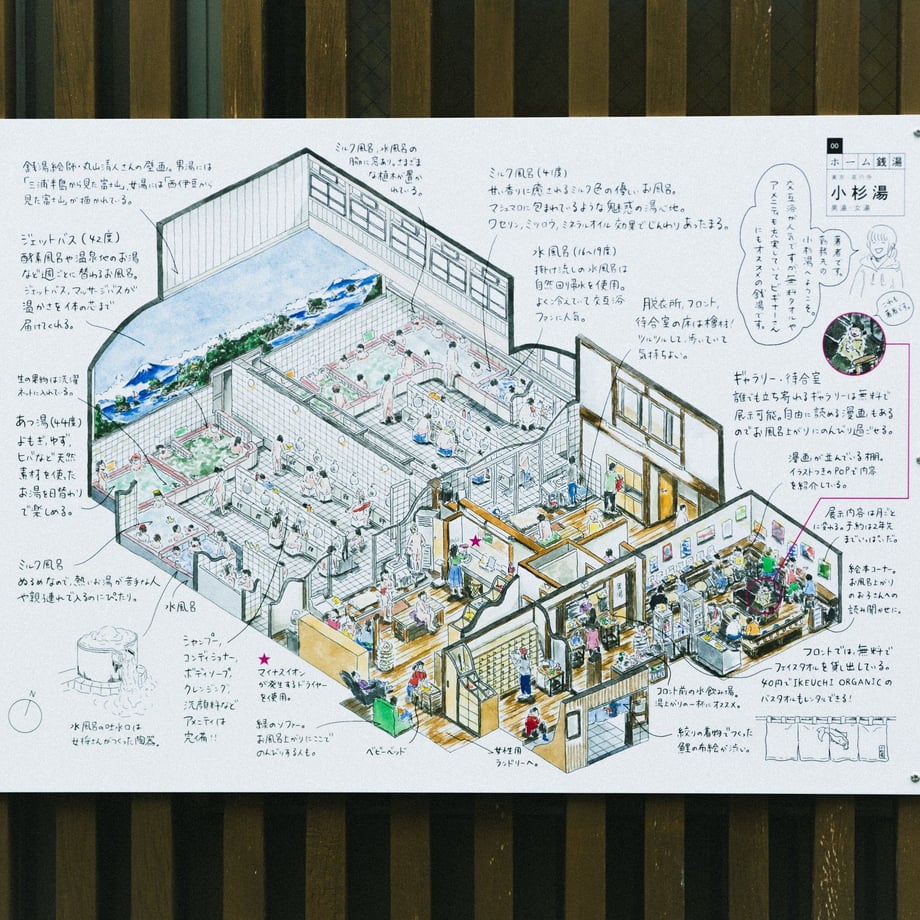 銭湯絵師・丸山清人さんの壁画。男湯には
「三浦半島から見た富士山」、女湯には「西伊豆から
見た富士山」が描かれている。
ミルク風呂、水風呂の
脇に窓あり。さまざま
な植木が置か
れている。
ミルク風呂(41度)
甘い香りに癒されるミルク色の優しいお風呂。
マシュマロに包まれているような魅惑の湯心地。
ワセリン、ミツロウ、ミネラルオイル効果でじんわりあったまる。
00
ホーム銭湯
東京・高円寺
小杉湯
男湯・女湯
交互浴が人気ですが無料タオルや
アメニティも充実していてビギナーさん
にもオススメの銭湯です。
著者です。
勤務先の
小杉湯へようこそ。
これも
著者です。
ジェットバス(42度)
酵素風呂や温泉地のお湯
など週ごとに替わるお風呂。
ジェットバス、マッサージバスが
温かさを体の芯まで
届けてくれる。
水風呂(16〜19度)
掛け流しの水風呂は
自然回り井水を使用。
よく冷えていて交互浴
ファンに人気。
脱衣所、フロント、
待合室の床は檜材!
ツルツルして、歩いていて
気持ちよい。
生の果物は洗濯
ネットに入れている。
あつ湯(44度)
よもぎ、ゆず、
ヒバなど天然
素材を使った
お湯を日替わり
で楽しめる。
ギャラリー・待合室
誰でも立ち寄れるギャラリーは無料で
展示可能。自由に読める漫画もある
のでお風呂上がりにのんびり過ごせる。
漫画が並んでいる棚。
イラストつきのPOPで内容
を紹介している。
展示内容は月ごと
に変わる。予約は2年先
までいっぱいだ。
絵本コーナー。
お風呂上がり
のお子さんへの
読み聞かせに。
ミルク風呂
ぬるめなので、熱いお湯が苦手な人
や親子連れで入るのにぴったり。
水風呂
水風呂の吐水口は
女将さんがつくった陶器。
N
シャンプー、
コンディショナー、
ボディソープ、
クレンジング、
洗顔料など
アメニティは
完備!!
★
マイナスイオン
が発生するドライヤー
を使用。
緑のソファー。
お風呂上がりにここで
のんびりする人も。
ベビーベッド
女性用
ランドリーへ。
フロント前の水飲み場。
湯上がりの一杯にオススメ。
フロントでは、無料で
フェイスタオルを貸し出している。
40円でIKEUCHI ORGANICの
バスタオルもレンタルできる!
絞りの着物でつくった
鯉の布絵が渋い。